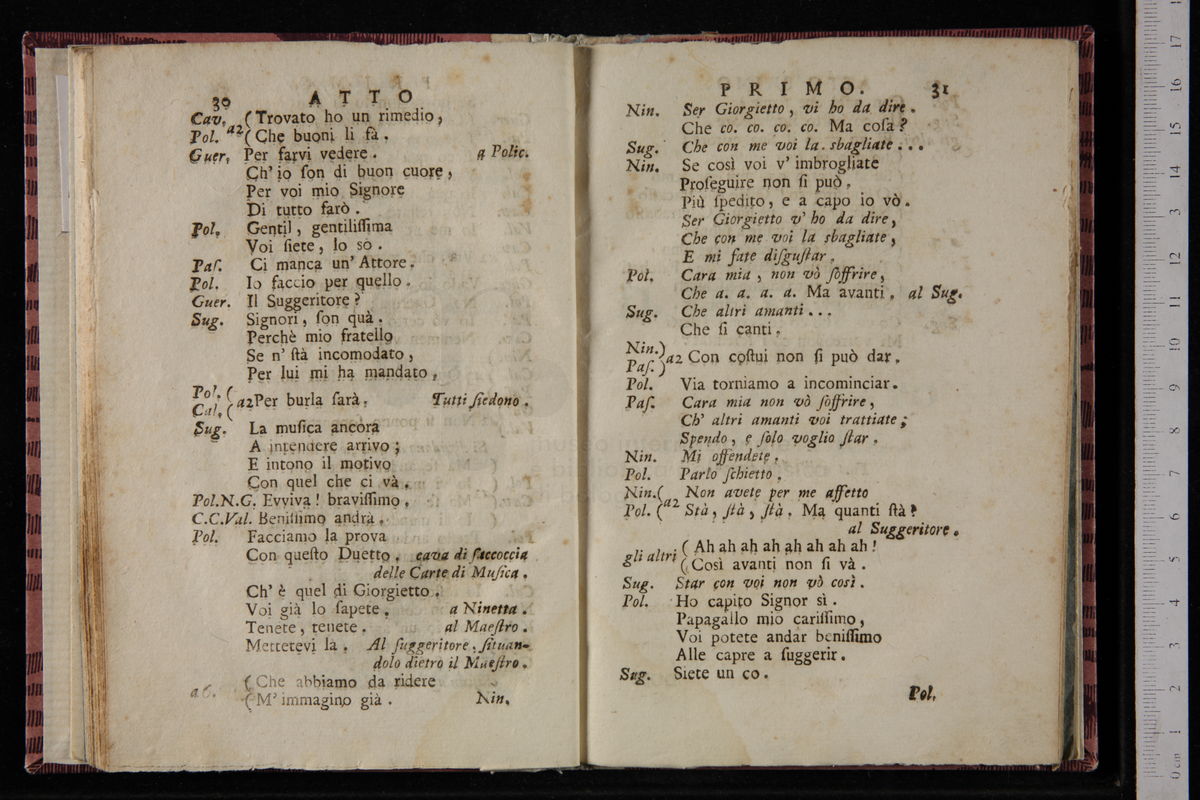 30 ATTO
Cav. (Trovato ho un rimedio,
Pol. a2 (Che buoni li fà.
Guer. Per farvi vedere. a Polic.
Ch' io ſon di buon cuore,
Per voi mio Signore
Di tutto farò.
Pol. Gentil, gentiliſſima
Voi ſiete, lo sò.
Paſ. Ci manca un' Attore.
Pol. Io faccio per quello.
Guer. Il Suggeritore?
Sug. Signori, ſon quà.
Perchè mio fratello
Se n' ſtà incomodato,
Per lui mi ha mandato.
Pol. (
Cal. ( a2 Per burla farà. Tutti ſiedono.
Sug. La muſica ancora
A intendere arrivo;
E intono il motivo
Con quel che ci và.
Pol.N.G. Evviva! braviſſimo.
C.C.Val. Beniſſimo andrà.
Pol. Facciamo la prova
Con queſto Duetto. cava di ſaccoccia
delle Carte di Muſica.
Ch' è quel di Giorgietto.
Voi già lo ſapete. a Ninetta.
Tenete, tenete. al Maeſtro.
Mettetevi là. Al ſuggeritore, ſituan-
dolo dietro il Maeſtro.
a 6. (Che abbiamo da ridere
(M' immagino già. Nin.
PRIMO. 31
Nin. Ser Giorgietto, vi ho da dire.
Che co. co. co. co. Ma coſa?
Sug. Che con me voi la. sbagliate...
Nin. Se così voi v' imbrogliate
Proſeguire non ſi può.
Più ſpedito, e a capo io vò.
Ser Giorgietto v' ho da dire,
Che con me voi la sbagliate,
E mi fate diſguſtar.
Pol. Cara mia, non vò ſoffrire,
Che a. a. a. a. Ma avanti. al Sug.
Sug. Che altri amanti...
Che ſi canti.
Nin.)
Paſ. ) a2 Con coſtui non ſi può dar.
Pol. Via torniamo a incominciar.
Paſ. Cara mia non vò ſoffrire,
Ch' altri amanti voi trattiate;
Spendo, e ſolo voglio ſtar.
Nin. Mi offendete.
Pol. Parlo ſchietto.
Nin.( Non avete per me affetto
Pol. ( a2 Stà, ſtà, ſtà. Ma quanti ſtà?
al Suggeritore.
gli altri ( Ah ah ah ah ah ah ah ah!
(Così avanti non ſi và.
Sug. Star con voi non vò così.
Pol. Ho capito Signor sì.
Papagallo mio cariſſimo,
Voi potete andar beniſſimo
Alle capre a ſuggerir.
Sug. Siete un co.
Pol.